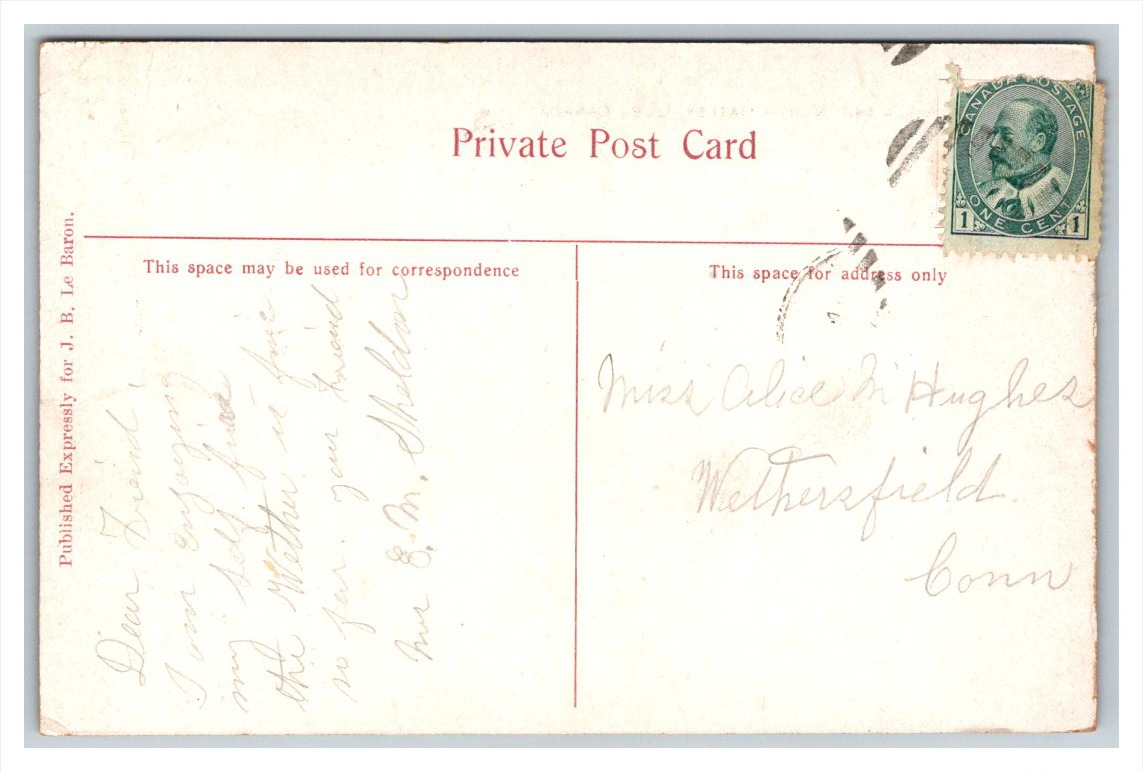 Private Post Card
CANADA POSTAGE
ONE CENT
1 1
Published Expressly for J. B. Le Baron.
This space may be used for correspondence
This space for address only
Dear Friend
I am Enjoying
my self fine
the Wether is fine
so far. your Friend
Mrs E. M. Sheldon
Miss Alice M Hughes
Wethersfield.
Conn